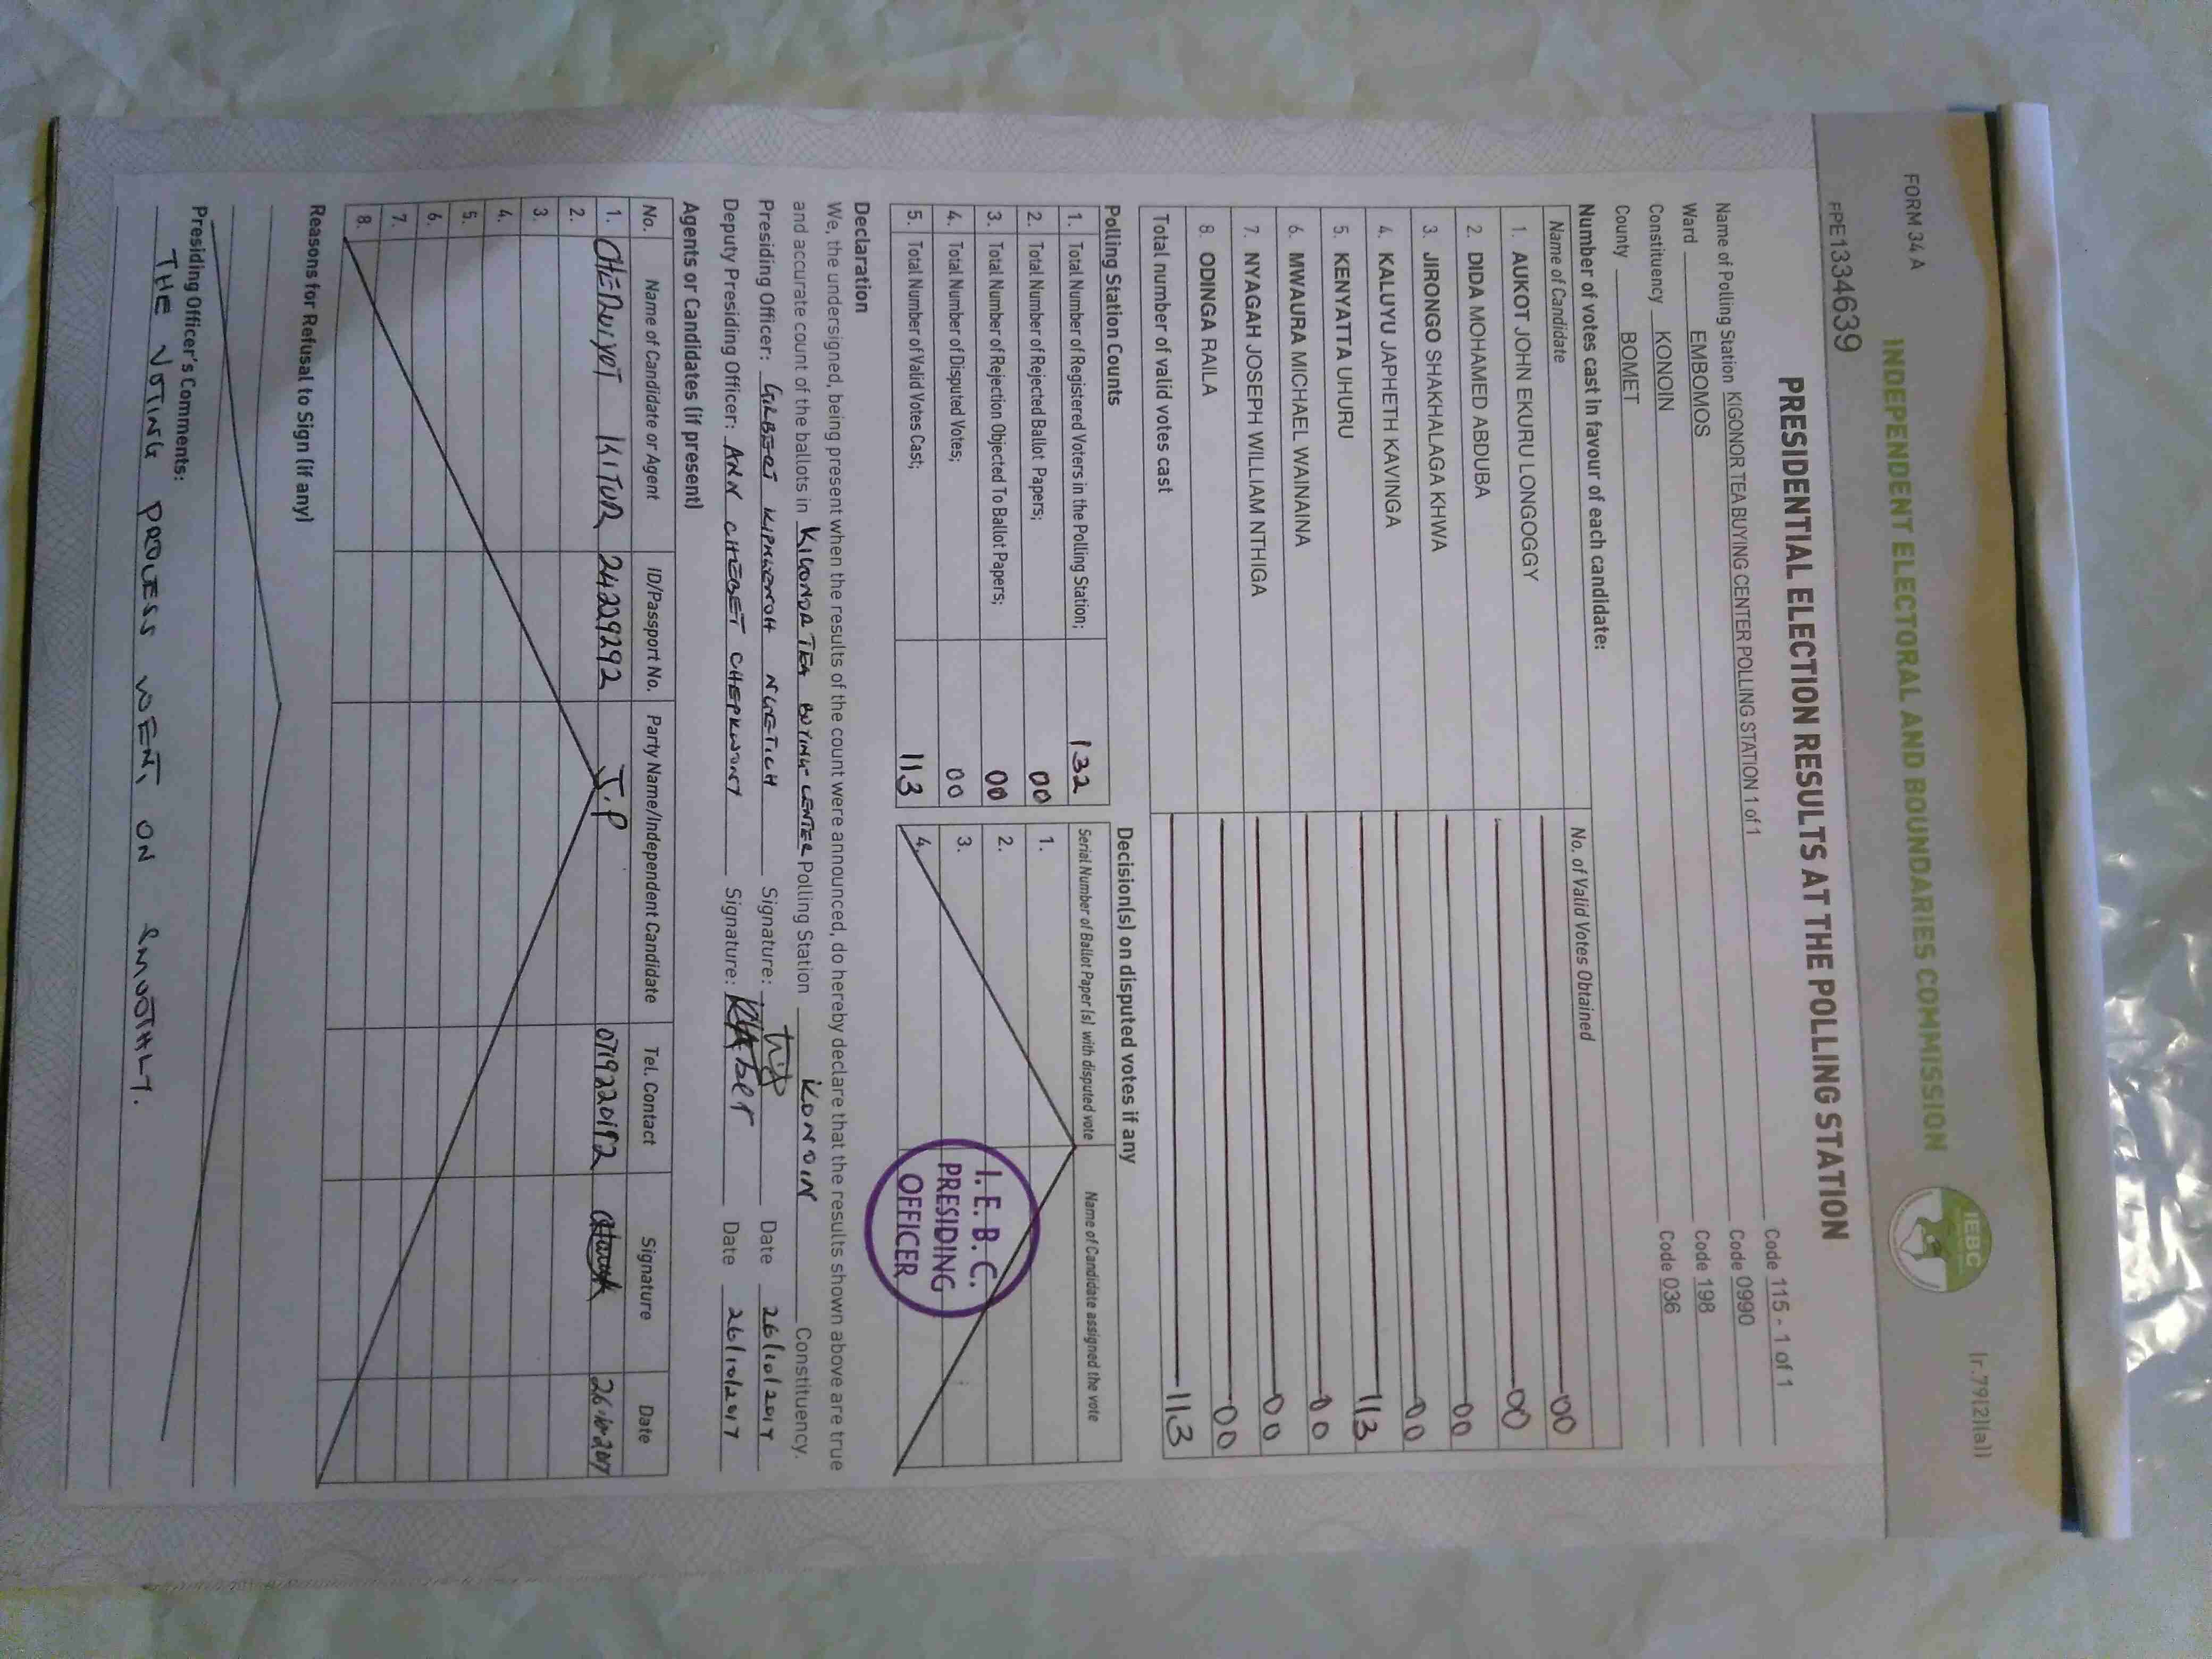 FORM 34 A
(r.79(2)(a))
INDEPENDENT ELECTORAL AND BOUNDARIES COMMISSION
IEBC
PRE1334639
PRESIDENTIAL ELECTION RESULTS AT THE POLLING STATION
Name of Polling Station KIGONOR TEA BUYING CENTER POLLING STATION 1 of 1 Code 115 - 1 of 1
Ward EMBOMOS Code 0990
Constituency KONOIN Code 198
County BOMET Code 036
Number of votes cast in favour of each candidate:
Name of Candidate No. of Valid Votes Obtained
1. AUKOT JOHN EKURU LONGOGGY 00
2. DIDA MOHAMED ABDUBA 00
3. JIRONGO SHAKHALAGA KHWA 00
4. KALUYU JAPHETH KAVINGA 00
5. KENYATTA UHURU 113
6. MWAURA MICHAEL WAINAINA 00
7. NYAGAH JOSEPH WILLIAM NTHIGA 00
8. ODINGA RAILA 00
Total number of valid votes cast 113
Polling Station Counts
1. Total Number of Registered Voters in the Polling Station; 132
2. Total Number of Rejected Ballot Papers; 00
3. Total Number of Rejection Objected To Ballot Papers; 00
4. Total Number of Disputed Votes; 00
5. Total Number of Valid Votes Cast; 113
Decision(s) on disputed votes if any
Serial Number of Ballot Paper (s) with disputed vote Name of Candidate assigned the vote
1.
2.
3.
4.
I. E. B. C.
PRESIDING
OFFICER
Declaration
We, the undersigned, being present when the results of the count were announced, do hereby declare that the results shown above are true
and accurate count of the ballots in KIGONOR TEA BUYING CENTER Polling Station KONOIN Constituency.
Presiding Officer: GILBERT KIPKEMOI NGETICH Signature: Date 26/10/2017
Deputy Presiding Officer: ANN CHEBET CHEPKWONY Signature: Date 26/10/2017
Agents or Candidates (if present)
No. Name of Candidate or Agent ID/Passport No. Party Name/Independent Candidate Tel. Contact Signature Date
1. CHERUIYOT KITUR 24229292 J.P 0719220192 26-10-2017
2.
3.
4.
5.
6.
7.
8.
Reasons for Refusal to Sign (if any)
Presiding Officer's Comments:
THE VOTING PROCESS WENT ON SMOOTHLY.